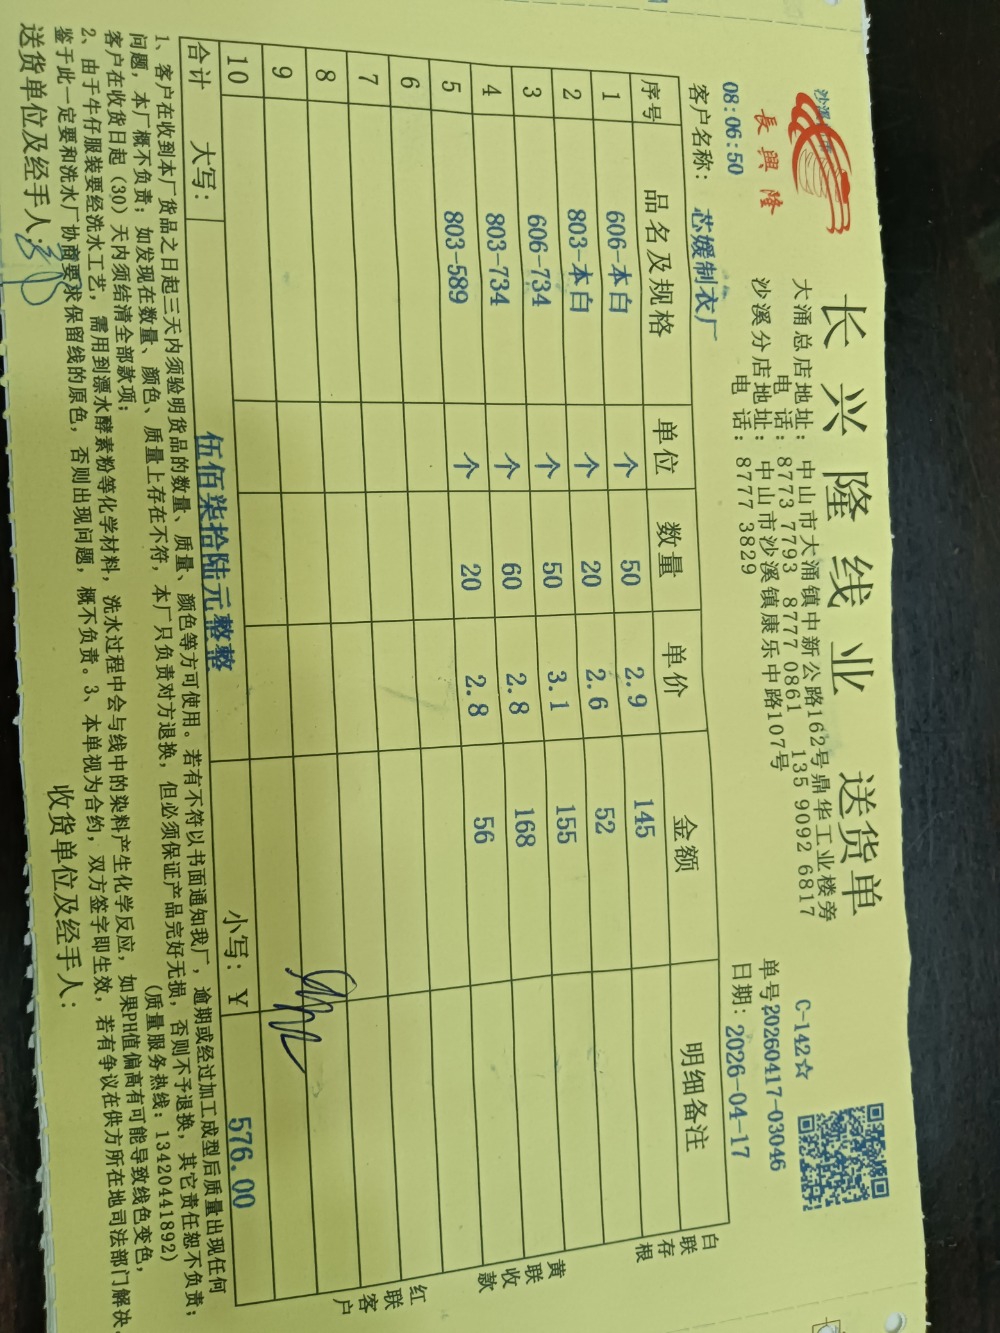 長興隆
长兴隆线业 送货单
大涌总店地址：中山市大涌镇中新公路162号鼎华工业楼旁
电 话：8773 7793 8777 0861 135 9092 6817
沙溪分店地址：中山市沙溪镇康乐中路107号
电 话：8777 3829
C-142☆
单号20260417-03046
日期：2026-04-17
08:06:50
客户名称：芯媛制衣厂
序号 品名及规格 单位 数量 单价 金额 明细备注
1 606-本白 个 50 2.9 145
2 803-本白 个 20 2.6 52
3 606-734 个 50 3.1 155
4 803-734 个 60 2.8 168
5 803-589 个 20 2.8 56
6
7
8
9
10
合计 大写：伍佰柒拾陆元整整 小写：¥ 576.00
白联存根
黄联收款
红联客户
1、客户在收到本厂货品之日起三天内须验明货品的数量、质量、颜色等方可使用。若有不符以书面通知我厂，逾期或经过加工成型后质量出现任何
问题，本厂概不负责；如发现在数量、颜色、质量上存在不符，本厂只负责对方退换，但必须保证产品完好无损，否则不予退换，其它责任恕不负责；
客户在收货日起（30）天内须结清全部款项；
(质量服务热线：13420441892)
2、由于牛仔服装要经洗水工艺，需用到漂水酵素粉等化学材料，洗水过程中会与线中的染料产生化学反应，如果PH值偏高有可能导致线色变色，
鉴于此一定要和洗水厂协商要求保留线的原色，否则出现问题，概不负责。3、本单视为合约，双方签字即生效，若有争议在供方所在地司法部门解决。
送货单位及经手人： 收货单位及经手人：